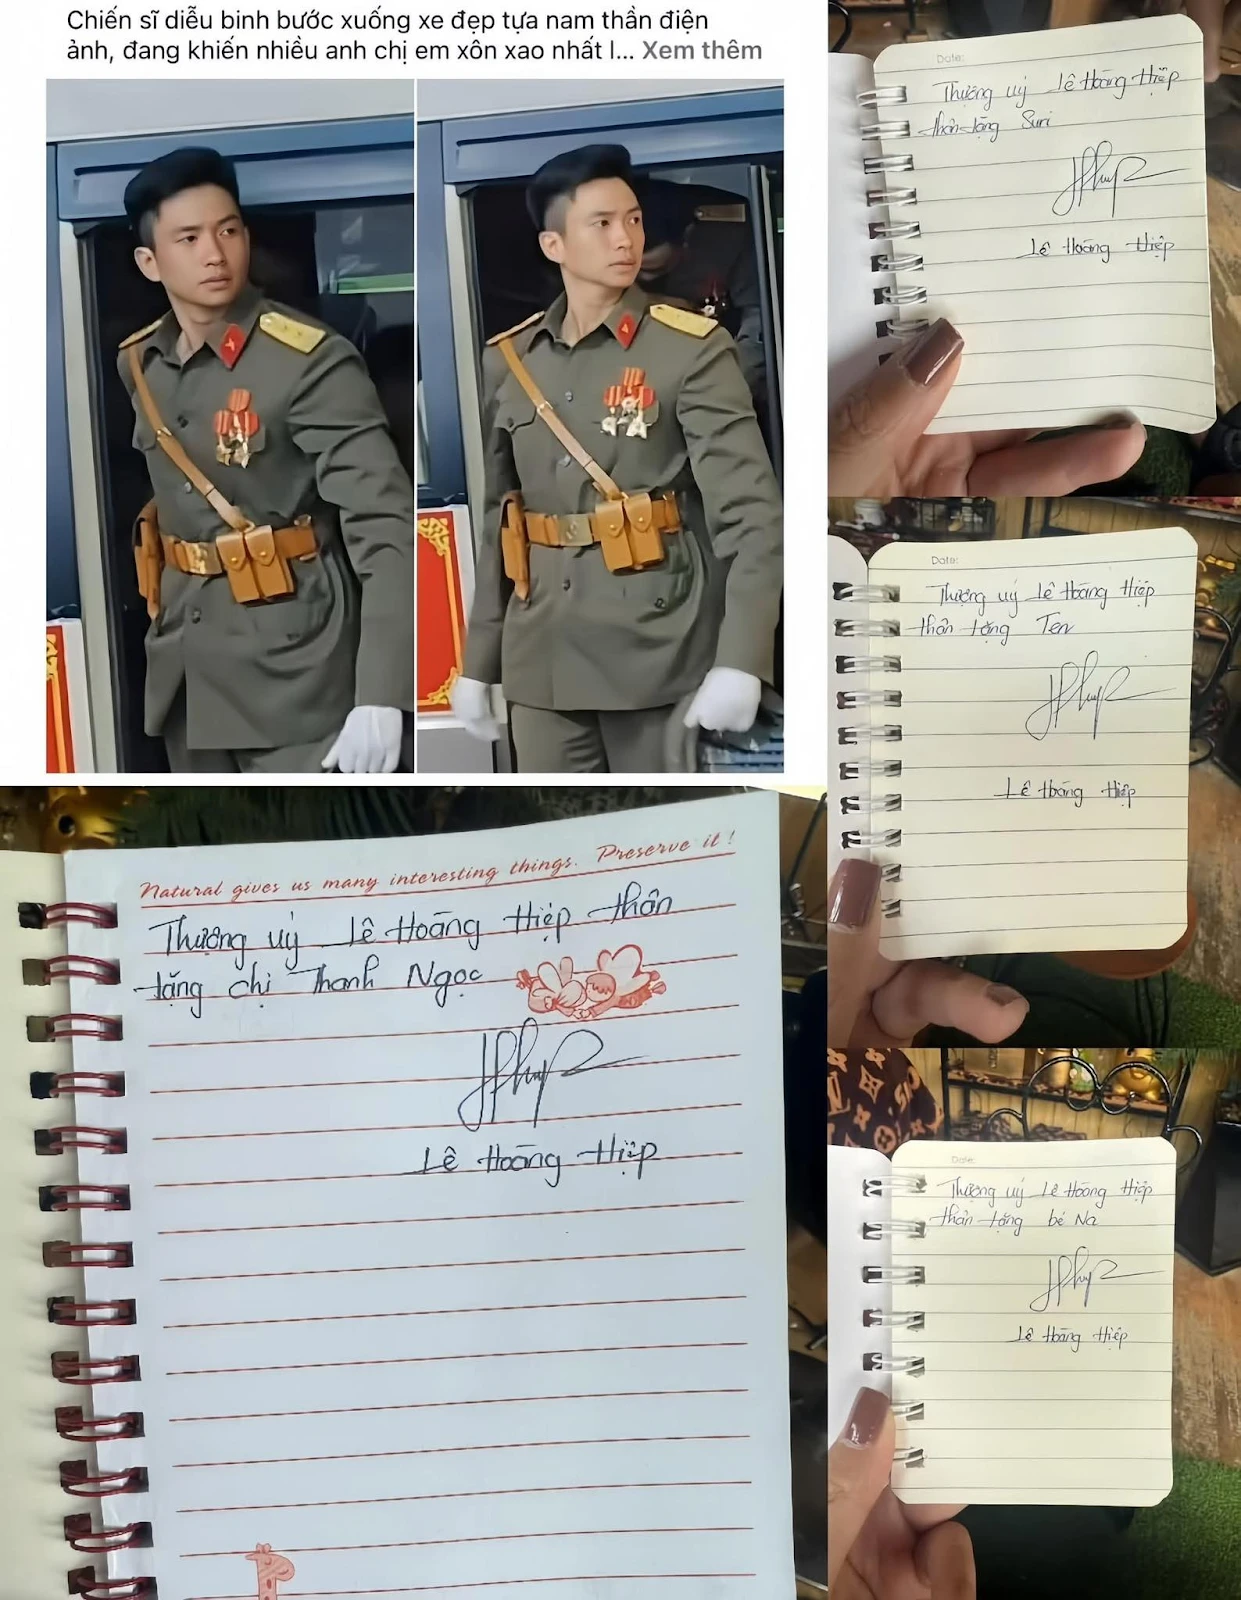 Chiến sĩ diễu binh bước xuống xe đẹp tựa nam thần điện
ảnh, đang khiến nhiều anh chị em xôn xao nhất l... Xem thêm
Date:
Thượng uý Lê Hoàng Hiệp
thân tặng Suri
Lê Hoàng Hiệp
Date:
Thượng uý Lê Hoàng Hiệp
thân tặng Ten
Lê Hoàng Hiệp
Natural gives us many interesting things. Preserve it!
Thượng uý Lê Hoàng Hiệp thân
tặng chị Thanh Ngọc
Lê Hoàng Hiệp
Date:
Thượng uý Lê Hoàng Hiệp
thân tặng bé Na
Lê Hoàng Hiệp